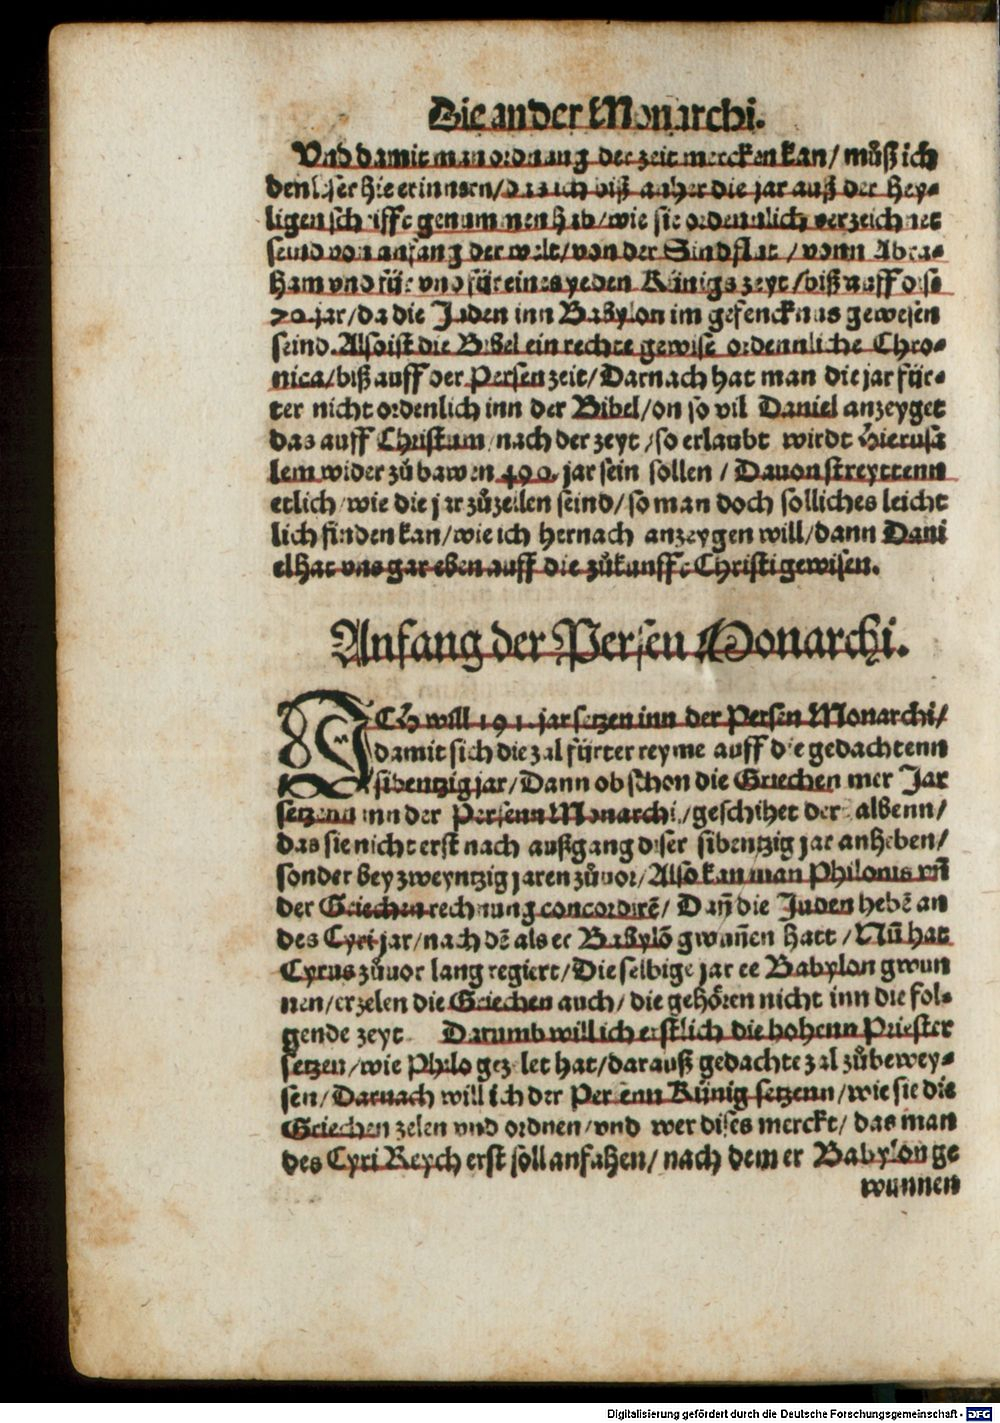 Die ander Monarchi.
Vnd damit man ordnung der zeit mercken kan/ můß ich
den leser hie erinnern/ das ich biß anher die jar auß der Hey-
ligen schrifft genummen hab/ wie sie ordennlich verzeichnet
seind von anfang der welt/ von der Sindflut / vonn Abra-
ham vnd für vnd für eines yeden Künigs zeyt/ biß auff dise
70. jar/ da die Juden inn Babylon im gefencknus gewesen
seind. Also ist die Bibel ein rechte gewise ordennliche Chro-
nica/ biß auff der Persen zeit/ Darnach hat man die jar für-
ter nicht ordenlich inn der Bibel/ on so vil Daniel anzeyget
das auff Christum nach der zeyt / so erlaubt wirdt Hierusa
lem wider zů bawen 490. jar sein sollen / Dauon streyttenn
etlich wie die jar zůzelen seind/ so man doch solliches leicht
lich finden kan/ wie ich hernach anzeygen will/ dann Dani
el hat vns gar eben auff die zůkunfft Christi gewisen.
Anfang der Persen Monarchi.
ICh will 191. jar setzen inn der Persen Monarchi/
damit sich die zal fürter reyme auff die gedachtenn
sibentzig jar/ Dann ob schon die Griechen mer Jar
setzenn inn der Persenn Monarchi/ geschihet derhalbenn/
das sie nicht erst nach außgang diser sibentzig jar anheben/
sonder bey zweyntzig jaren zůuor/ Also kan man Philonis vñ
der Griechen rechnung concordirē/ Dañ die Juden hebē an
des Cyri jar/ nach dē als er Babylō gwuñen hatt / Nů hat
Cyrus zůuor lang regiert/ Die selbige jar ee Babylon gwun
nen/ erzelen die Griechen auch/ die gehören nicht inn die fol-
gende zeyt. Darumb will ich erstlich die hohenn Priester
setzen/ wie Philo gezelet hat/ darauß gedachte zal zůbewey-
sen/ Darnach will ich der Persenn Künig setzenn/ wie sie die
Griechen zelen vnd ordnen/ vnd wer dises merckt/ das man
des Cyri Reych erst soll anfahen/ nach dem er Babylon ge
wunnen
Digitalisierung gefördert durch die Deutsche Forschungsgemeinschaft - DFG